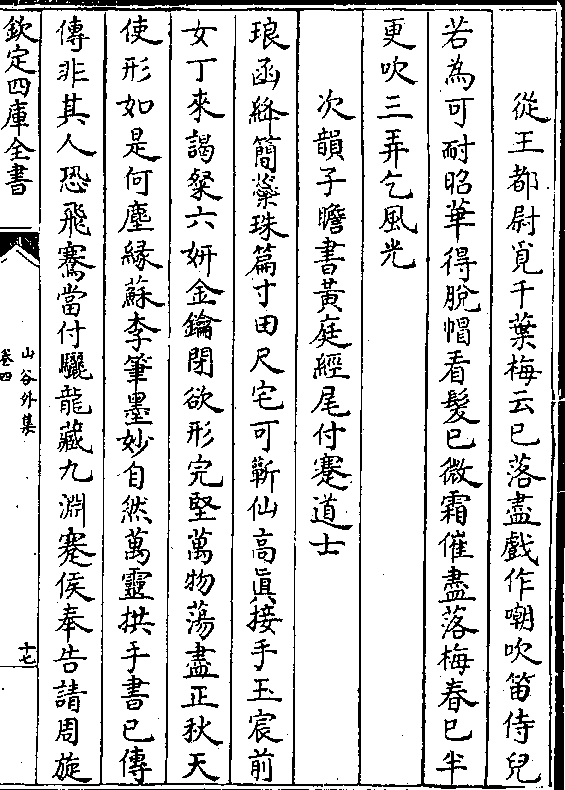 從王都尉覓千葉梅云已落盡戲作嘲吹笛侍兒
若為可耐昭華得脫帽看髮已微霜催盡落梅春已半
更吹三弄乞風光
次韻子瞻書黃庭經尾付蹇道士
琅函絳簡蘂珠篇寸田尺宅可蘄仙高真接手玉宸前
女丁來謁粲六妍金鑰閉欲形完堅萬物蕩盡正秋天
使形如是何塵緣蘇李筆墨妙自然萬靈拱手書已傳
傳非其人恐飛騫當付驪龍藏九淵蹇侯奉告請周旋
欽定四庫全書
山谷外集
卷四
十七